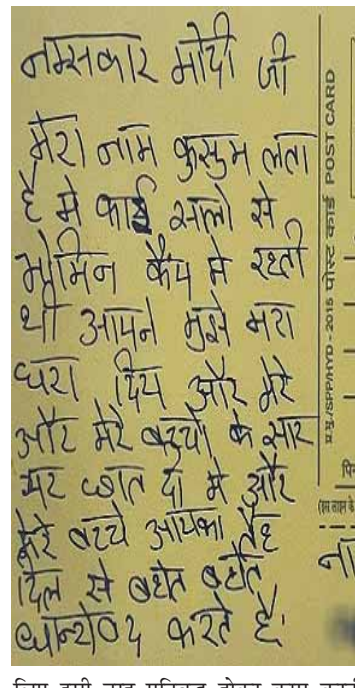 नमस्कार मोदी जी
मेरा नाम कुसुम लता
है मे काई सालो से
भोमिन कैंप मे रहती
थी आपने मुझे मरा
घरा दिय और मेरे
और मेरे बच्चो के सार
पर छात दी मे और
मेरे बच्चे आपका तेह
दिल से बहोत बहोत
धान्येवाद करते है।
प्र.मु./SPP/HYD - 2015 पोस्ट कार्ड POST CARD
पि
(इस लाइन के
ना